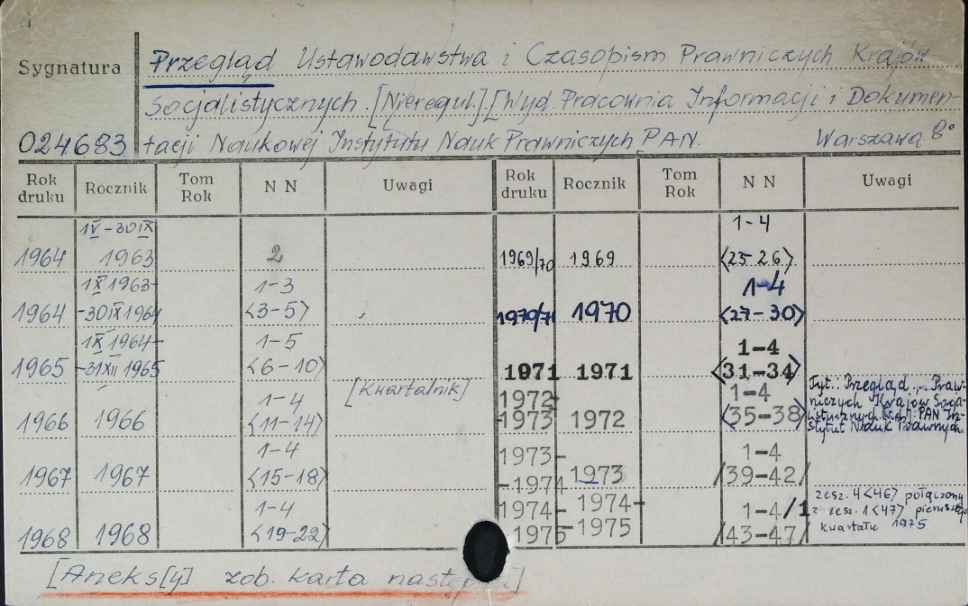 Sygnatura
Przegląd Ustawodawstwa i Czasopism Prawniczych Krajów
Socjalistycznych. [Nieregul.]. [Wyd. Pracownia Informacji i Dokumen-
024683 tacji Naukowej Instytutu Nauk Prawniczych PAN. Warszawa 8°
Rok druku Rocznik Tom Rok N N Uwagi Rok druku Rocznik Tom Rok N N Uwagi
1 IV - 30 IX 1-4
1964 1963 2 1969/70 1969 <25-26>
1 X 1963- 1-3 1-4
1964 -30 IX 1964 <3-5> 1970/71 1970 <27-30>
1 X 1964- 1-5 1-4
1965 -31 XII 1965 <6-10> 1971 1971 <31-34>
[Kwartalnik]
1-4 1972- 1-4
1966 1966 <11-14> -1973 1972 <35-38>
Tyt.: Przegląd ... Praw-
niczych Krajów Socja-
listycznych PAN In-
stytut Nauk Prawnych
1-4 1973- 1-4
1967 1967 <15-18> -1974 1973 /39-42/
1-4 1974- 1974- 1-4/1
1968 1968 <19-22> 1975 -1975 /43-47/
zesz. 4<46> połączony
z zesz. 1<47> pierwszego
kwartału 1975
[Aneks[y] zob. karta